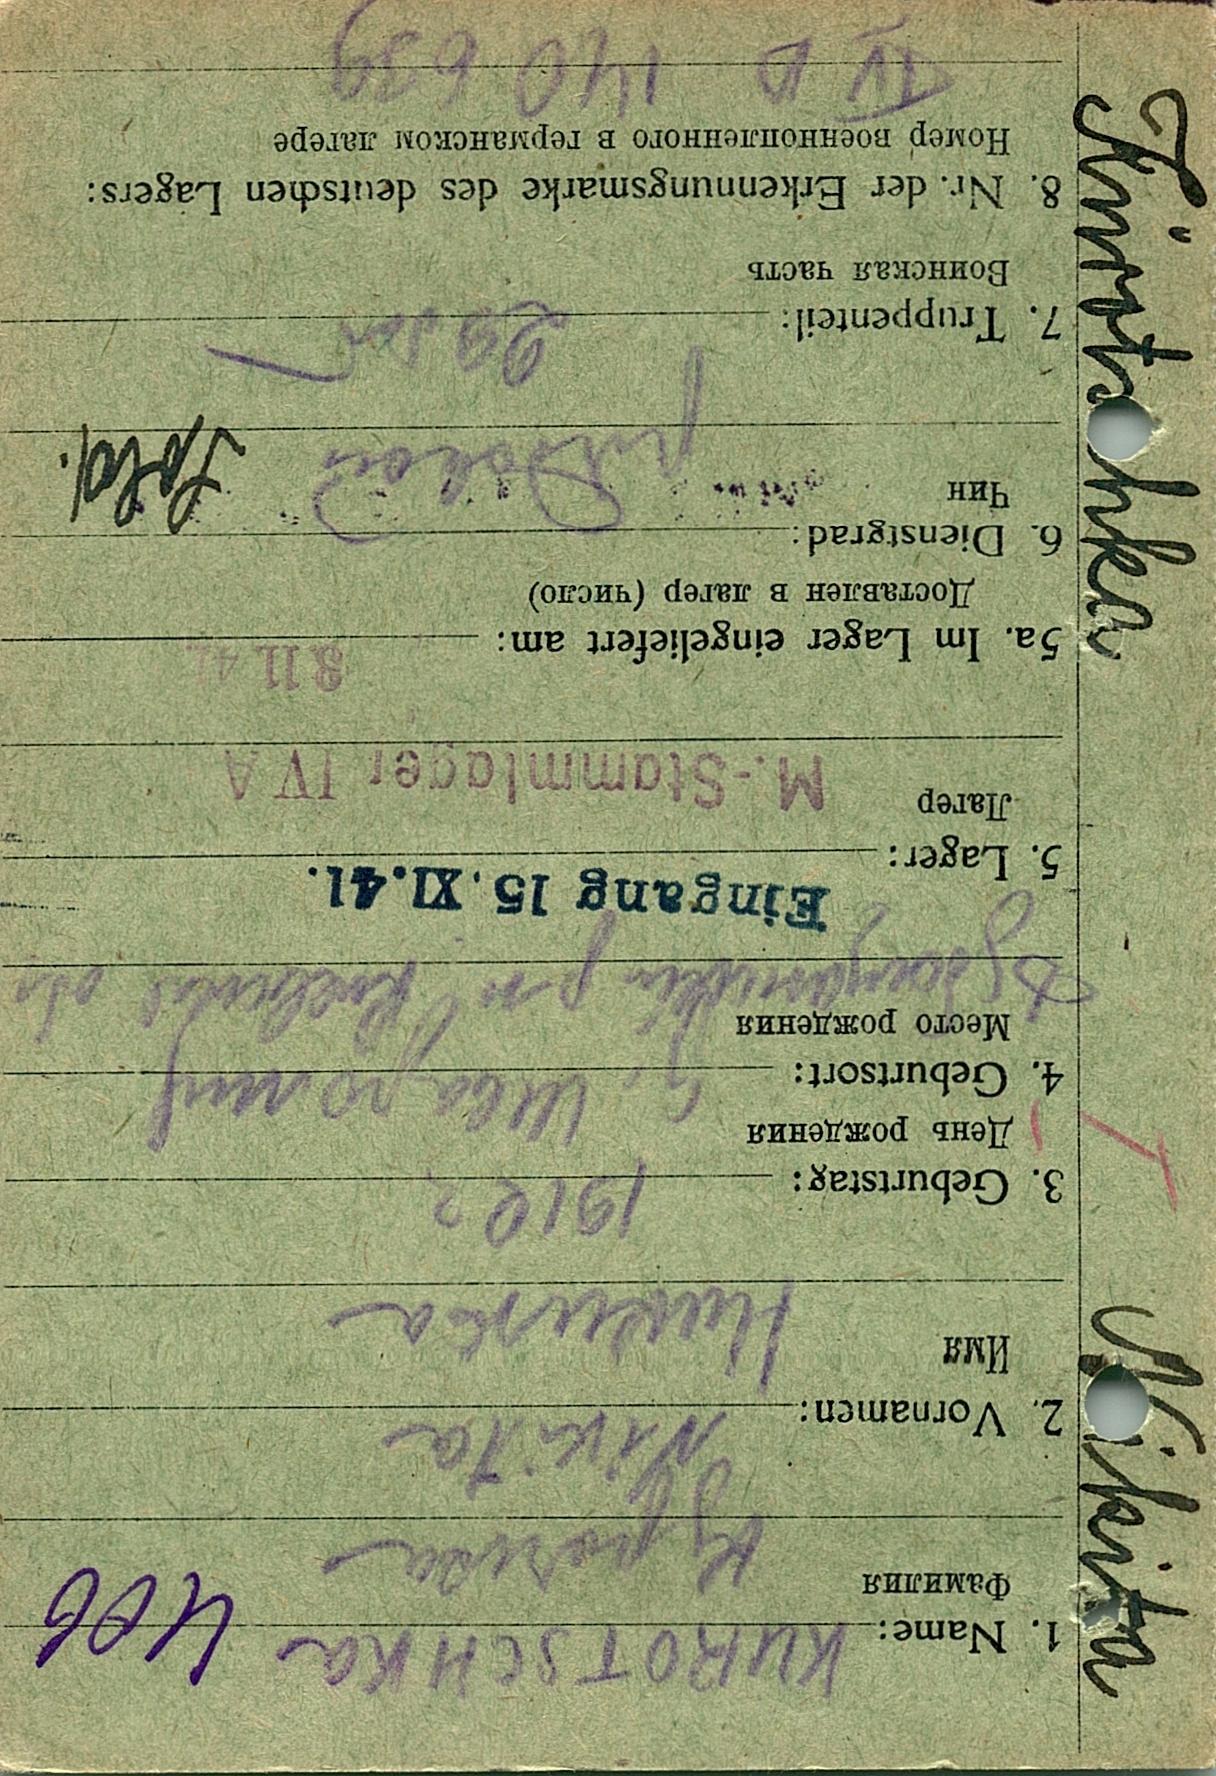 KUROTSCHKA 406
1. Name:
Фамилия
Курочка
Nikita
2. Vornamen:
Имя
Никита
3. Geburtstag:
День рождения
4. Geburtsort:
Место рождения
Eingang 15. XI. 41.
5. Lager:
Лагер
M.-Stammlager IV A
5a. Im Lager eingeliefert am:
Доставлен в лагер (число)
6. Dienstgrad:
Чин
Sold.
7. Truppenteil:
Воинская часть
8. Nr. der Erkennungsmarke des deutschen Lagers:
Номер военнопленного в германском лагере
IV B 140 639
Kurotschka
Nikita